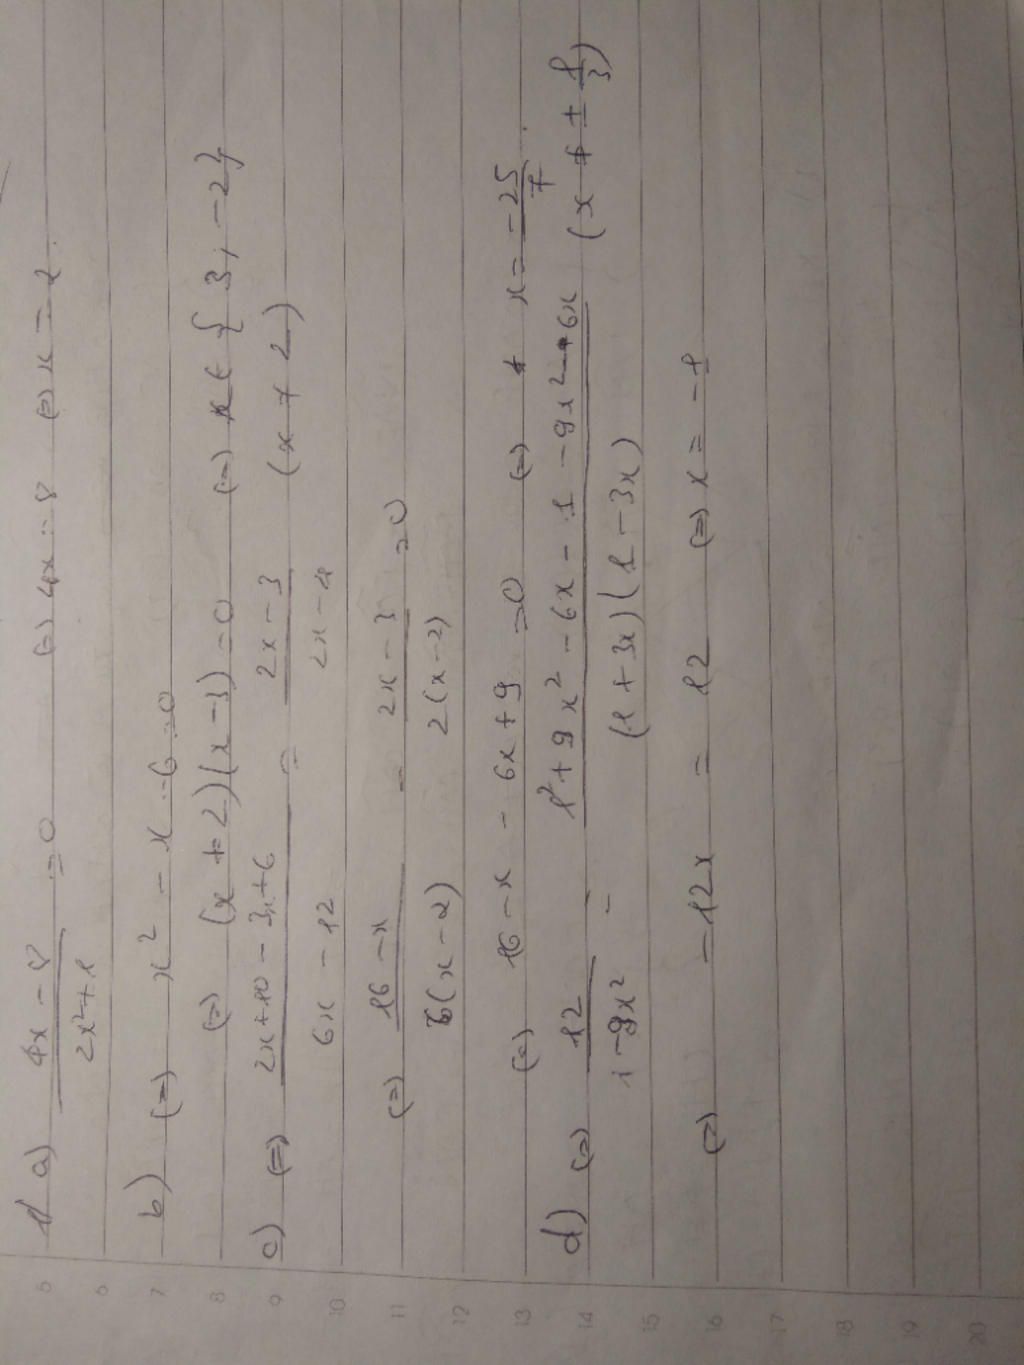 1/ a) (4x - 8)/(2x² + 1) = 0 (=) 4x = 8 (=) x = 2.
b) (=) x² - x - 6 = 0
(=) (x + 2)(x - 3) = 0 (=) x ∈ { 3 ; -2 }
c) (=) (2x + 10 - 3x + 6)/(6x - 12) = (2x - 3)/(2x - 4) (x ≠ 2)
(=) (16 - x)/(6(x - 2)) - (2x - 3)/(2(x - 2)) = 0
(=) 16 - x - 6x + 9 = 0 (=) x = -25/7.
d) (=) 12/(1 - 9x²) = (1² + 9x² - 6x - 1 - 9x² - 6x)/((1 + 3x)(1 - 3x)) (x ≠ ± 1/3)
(=) -12x = 12 (=) x = -1
5
6
7
8
9
10
11
12
13
14
15
16
17
18
19
20